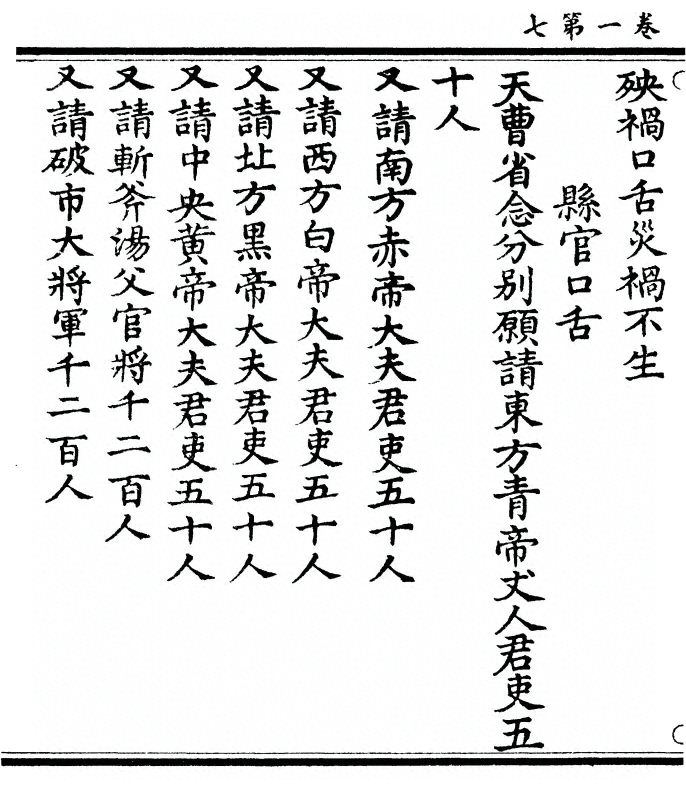 卷一第七
殃禍口舌災禍不生
縣官口舌
天曹省念分别願請東方青帝丈人君吏五
十人
又請南方赤帝大夫君吏五十人
又請西方白帝大夫君吏五十人
又請北方黑帝大夫君吏五十人
又請中央黄帝大夫君吏五十人
又請斬斧湯父官將千二百人
又請破市大將軍千二百人